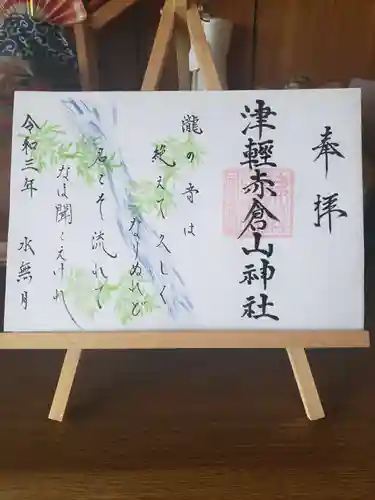 奉拝
津軽赤倉山神社
瀧の音は
絶えて久しく
なりぬれど
名こそ流れて
なほ聞こえけれ
令和三年 水無月